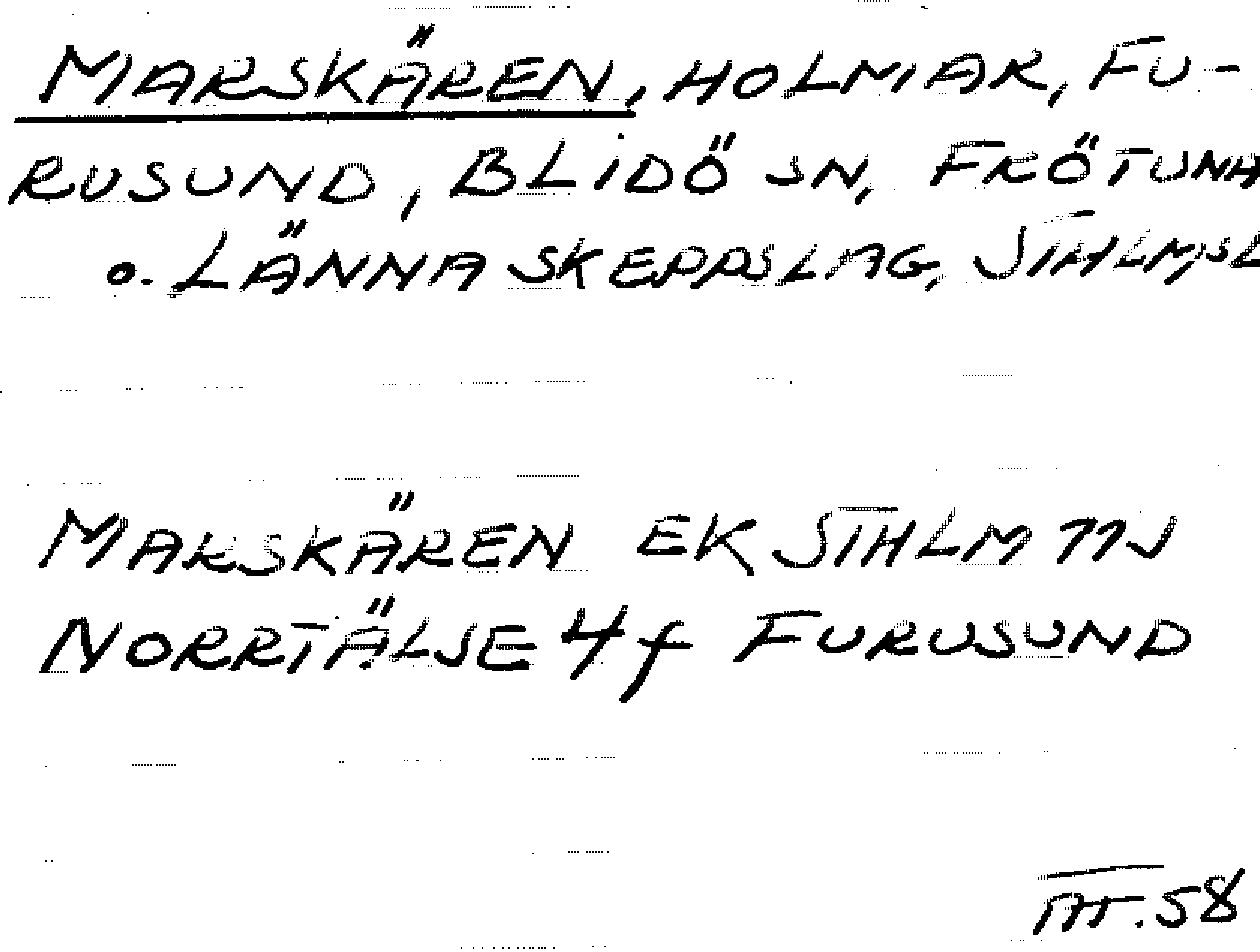 MARSKÄREN, HOLMAR, FU-
RUSUND, BLIDÖ SN, FRÖTUNA
o. LÄNNA SKEPPSLAG, STHLMS L
MARSKÄREN EK STHLM 11J
NORRTÄLJE 4f FURUSUND
58